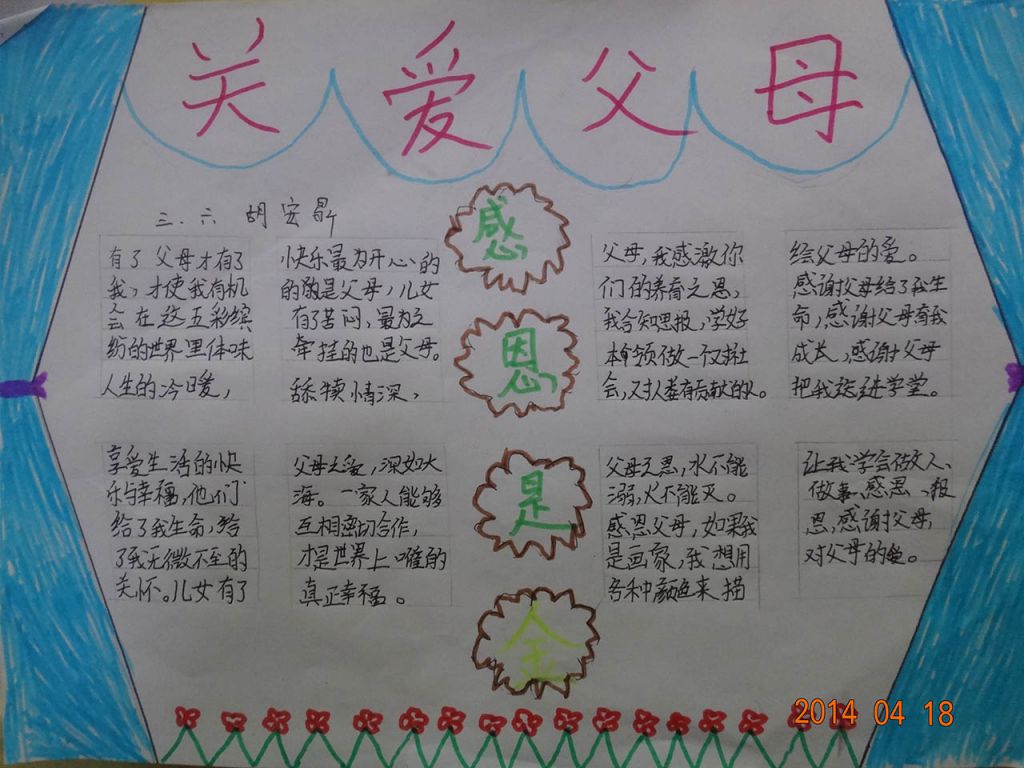 关爱父母
三.六 胡安
感
恩
是
金
有了父母才有了
我,才使我有机
会在这五彩缤
纷的世界里体味
人生的冷暖,
享受生活的快
乐与幸福,他们
给了我生命,给
了我无微不至的
关怀。儿女有了
快乐最为开心的
的是父母,儿女
有了苦闷,最为之
牵挂的也是父母。
舔犊情深,
父母之爱,深如大
海。一家人能够
互相密切合作,
才是世界上唯的
真正幸福。
父母,我感激你
们的养育之恩,
我会知恩报,学好
本领做一个对社
会,对人类有贡献的人。
父母之恩,水不能
溺,火不能灭。
感恩父母,如果我
是画家,我想用
各种颜色来描
绘父母的爱。
感谢父母给了我生
命,感谢父母育我
成长,感谢父母
把我送进学堂。
让我学会做人、
做事、感恩、报
恩,感谢父母,
对父母的爱。
2014 04 18